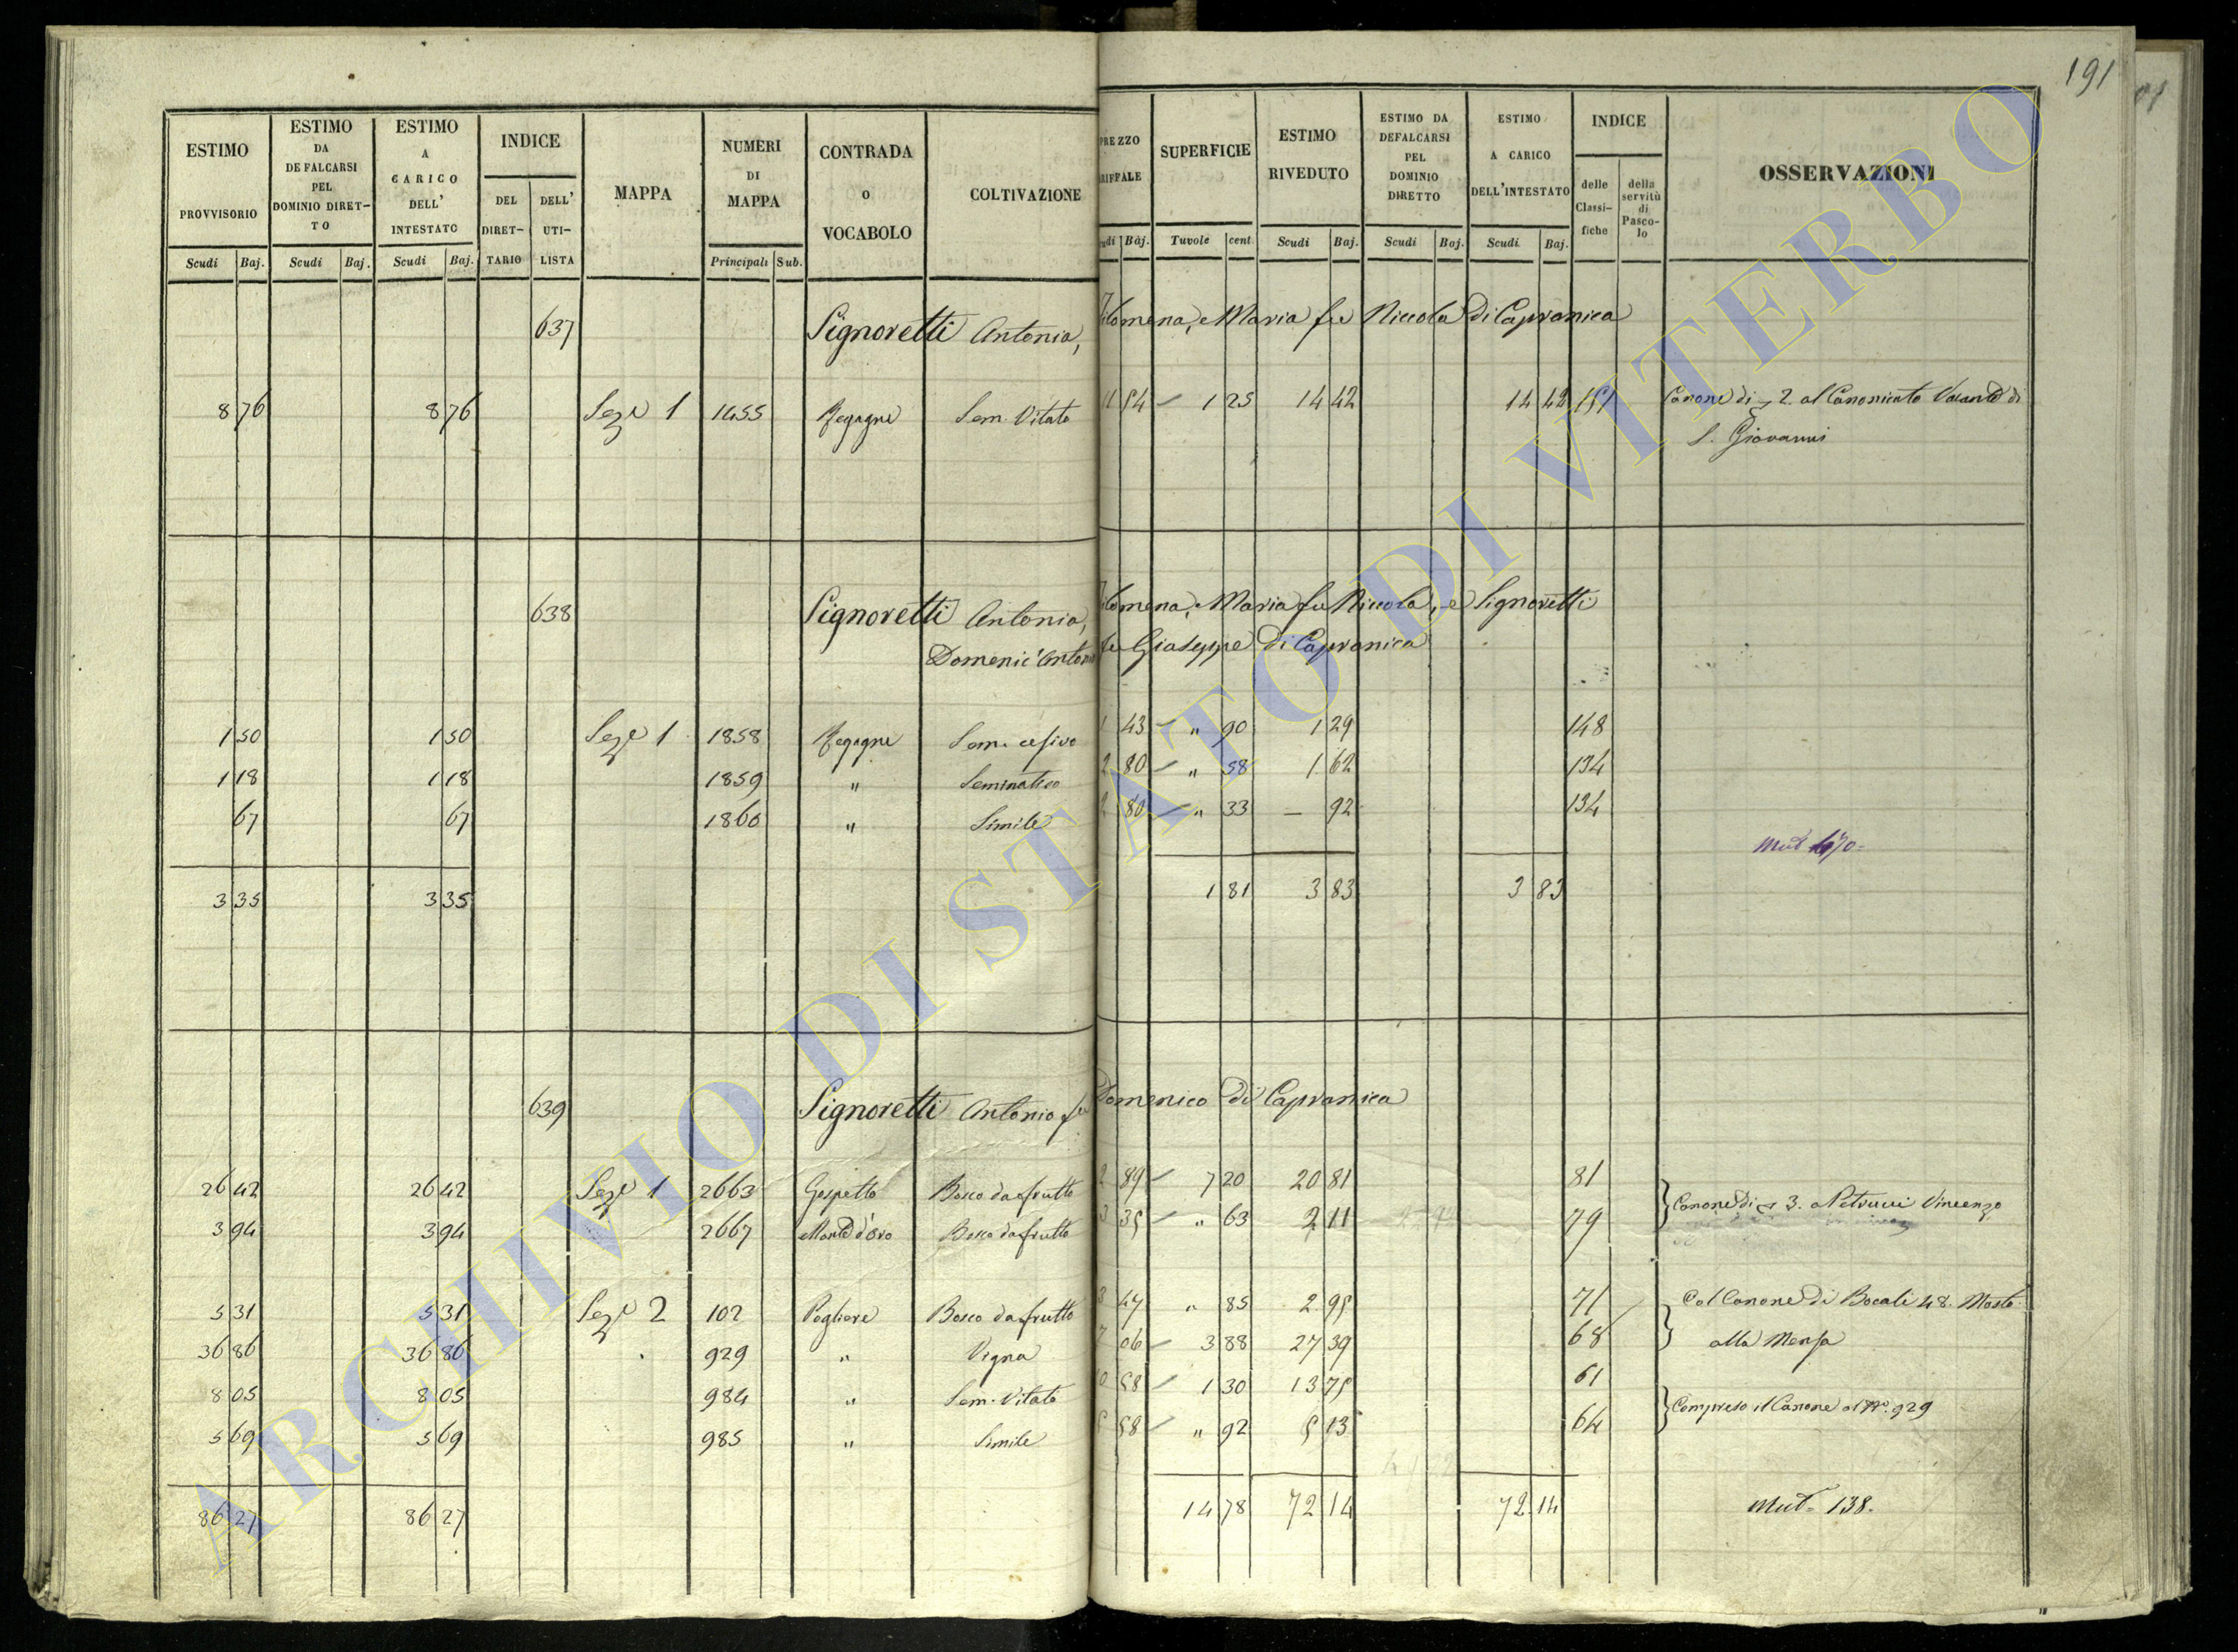 191
ESTIMO PROVVISORIO Scudi Baj.
ESTIMO DA DEFALCARSI PEL DOMINIO DIRET-TO Scudi Baj.
ESTIMO A CARICO DELL' INTESTATO Scudi Baj.
INDICE DEL DIRET-TARIO DELL' UTI-LISTA
MAPPA
NUMERI DI MAPPA Principali Sub.
CONTRADA o VOCABOLO
COLTIVAZIONE
PREZZO RIFFALE udi Baj.
SUPERFICIE Tuvole cent.
ESTIMO RIVEDUTO Scudi Baj.
ESTIMO DA DEFALCARSI PEL DOMINIO DIRETTO Scudi Baj.
ESTIMO A CARICO DELL'INTESTATO Scudi Baj.
INDICE delle Classi-fiche della servitù di Pasco-lo
OSSERVAZIONI
637 Signoretti Antonia, Filomena, e Maria fu Niccola di Capranica
8 76 8 76 Sez.e 1 1455 Sem. Vitato 11 54 1 25 14 42 14 42 151 Canone di 2. al Canonicato Vacante di
S. Giovanni
638 Signoretti Antonia, Filomena, e Maria fu Niccola, e Signoretti
Domenic'Antonio fu Giuseppe di Capranica
1 50 1 50 Sez.e 1 1858 Sem. cesivo 1 43 " 90 1 29 148
1 18 1 18 1859 " Seminativo 2 80 " 58 1 62 134
67 67 1860 " Simile 2 80 " 33 — 92 134
Mut 170
3 35 3 35 1 81 3 83 3 83
639 Signoretti Antonio fu Domenico di Capranica
26 42 26 42 Sez.e 1 2663 Gospetto Bosco da frutto 2 89 7 20 20 81 81
Canone di 3. a Petrucci Vincenzo
3 94 3 94 2667 Monte d'oro Bosco da frutto 3 35 " 63 2 11 79
5 31 5 31 Sez.e 2 102 Pogliere Bosco da frutto 3 47 " 85 2 95 71 Col Canone di Bocali 48. Mosto
36 86 36 86 929 " Vigna 7 06 3 88 27 39 68 alla Mensa
8 05 8 05 984 " Sem. Vitato 10 58 1 30 13 75 61
Compreso il Canone al N.o 929
5 69 5 69 985 " Simile 5 58 " 92 5 13 64
86 27 86 27 14 78 72 14 72 14 Mut. 138.
ARCHIVIO DI STATO DI VITERBO